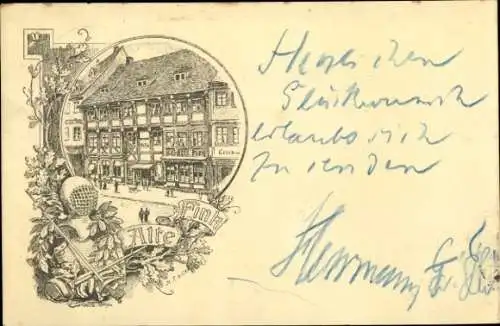 Alte Fink
Herzlichen
Glückwunsch
erlaubt sich
zu senden
Herrmann